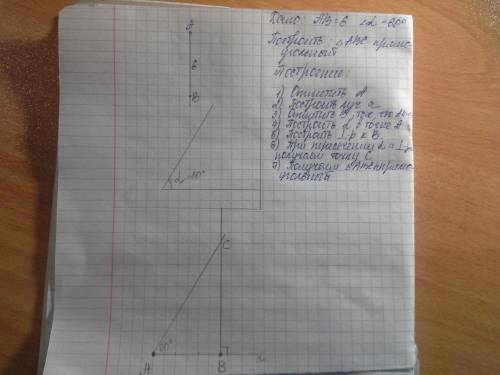 Дано: AB=6 ∠α-80°
Построить: △ABC прямо-
угольный
Построение:
1) Отметить A
2) Построить луч a
3) Отметить B, так, что
4) Построить ∠ в точке A
5) Построить ⊥ к B
6) При пересечении
получаем точку C
7) Получаем △ABC прямо-
угольный
A
6
B
C
A
B